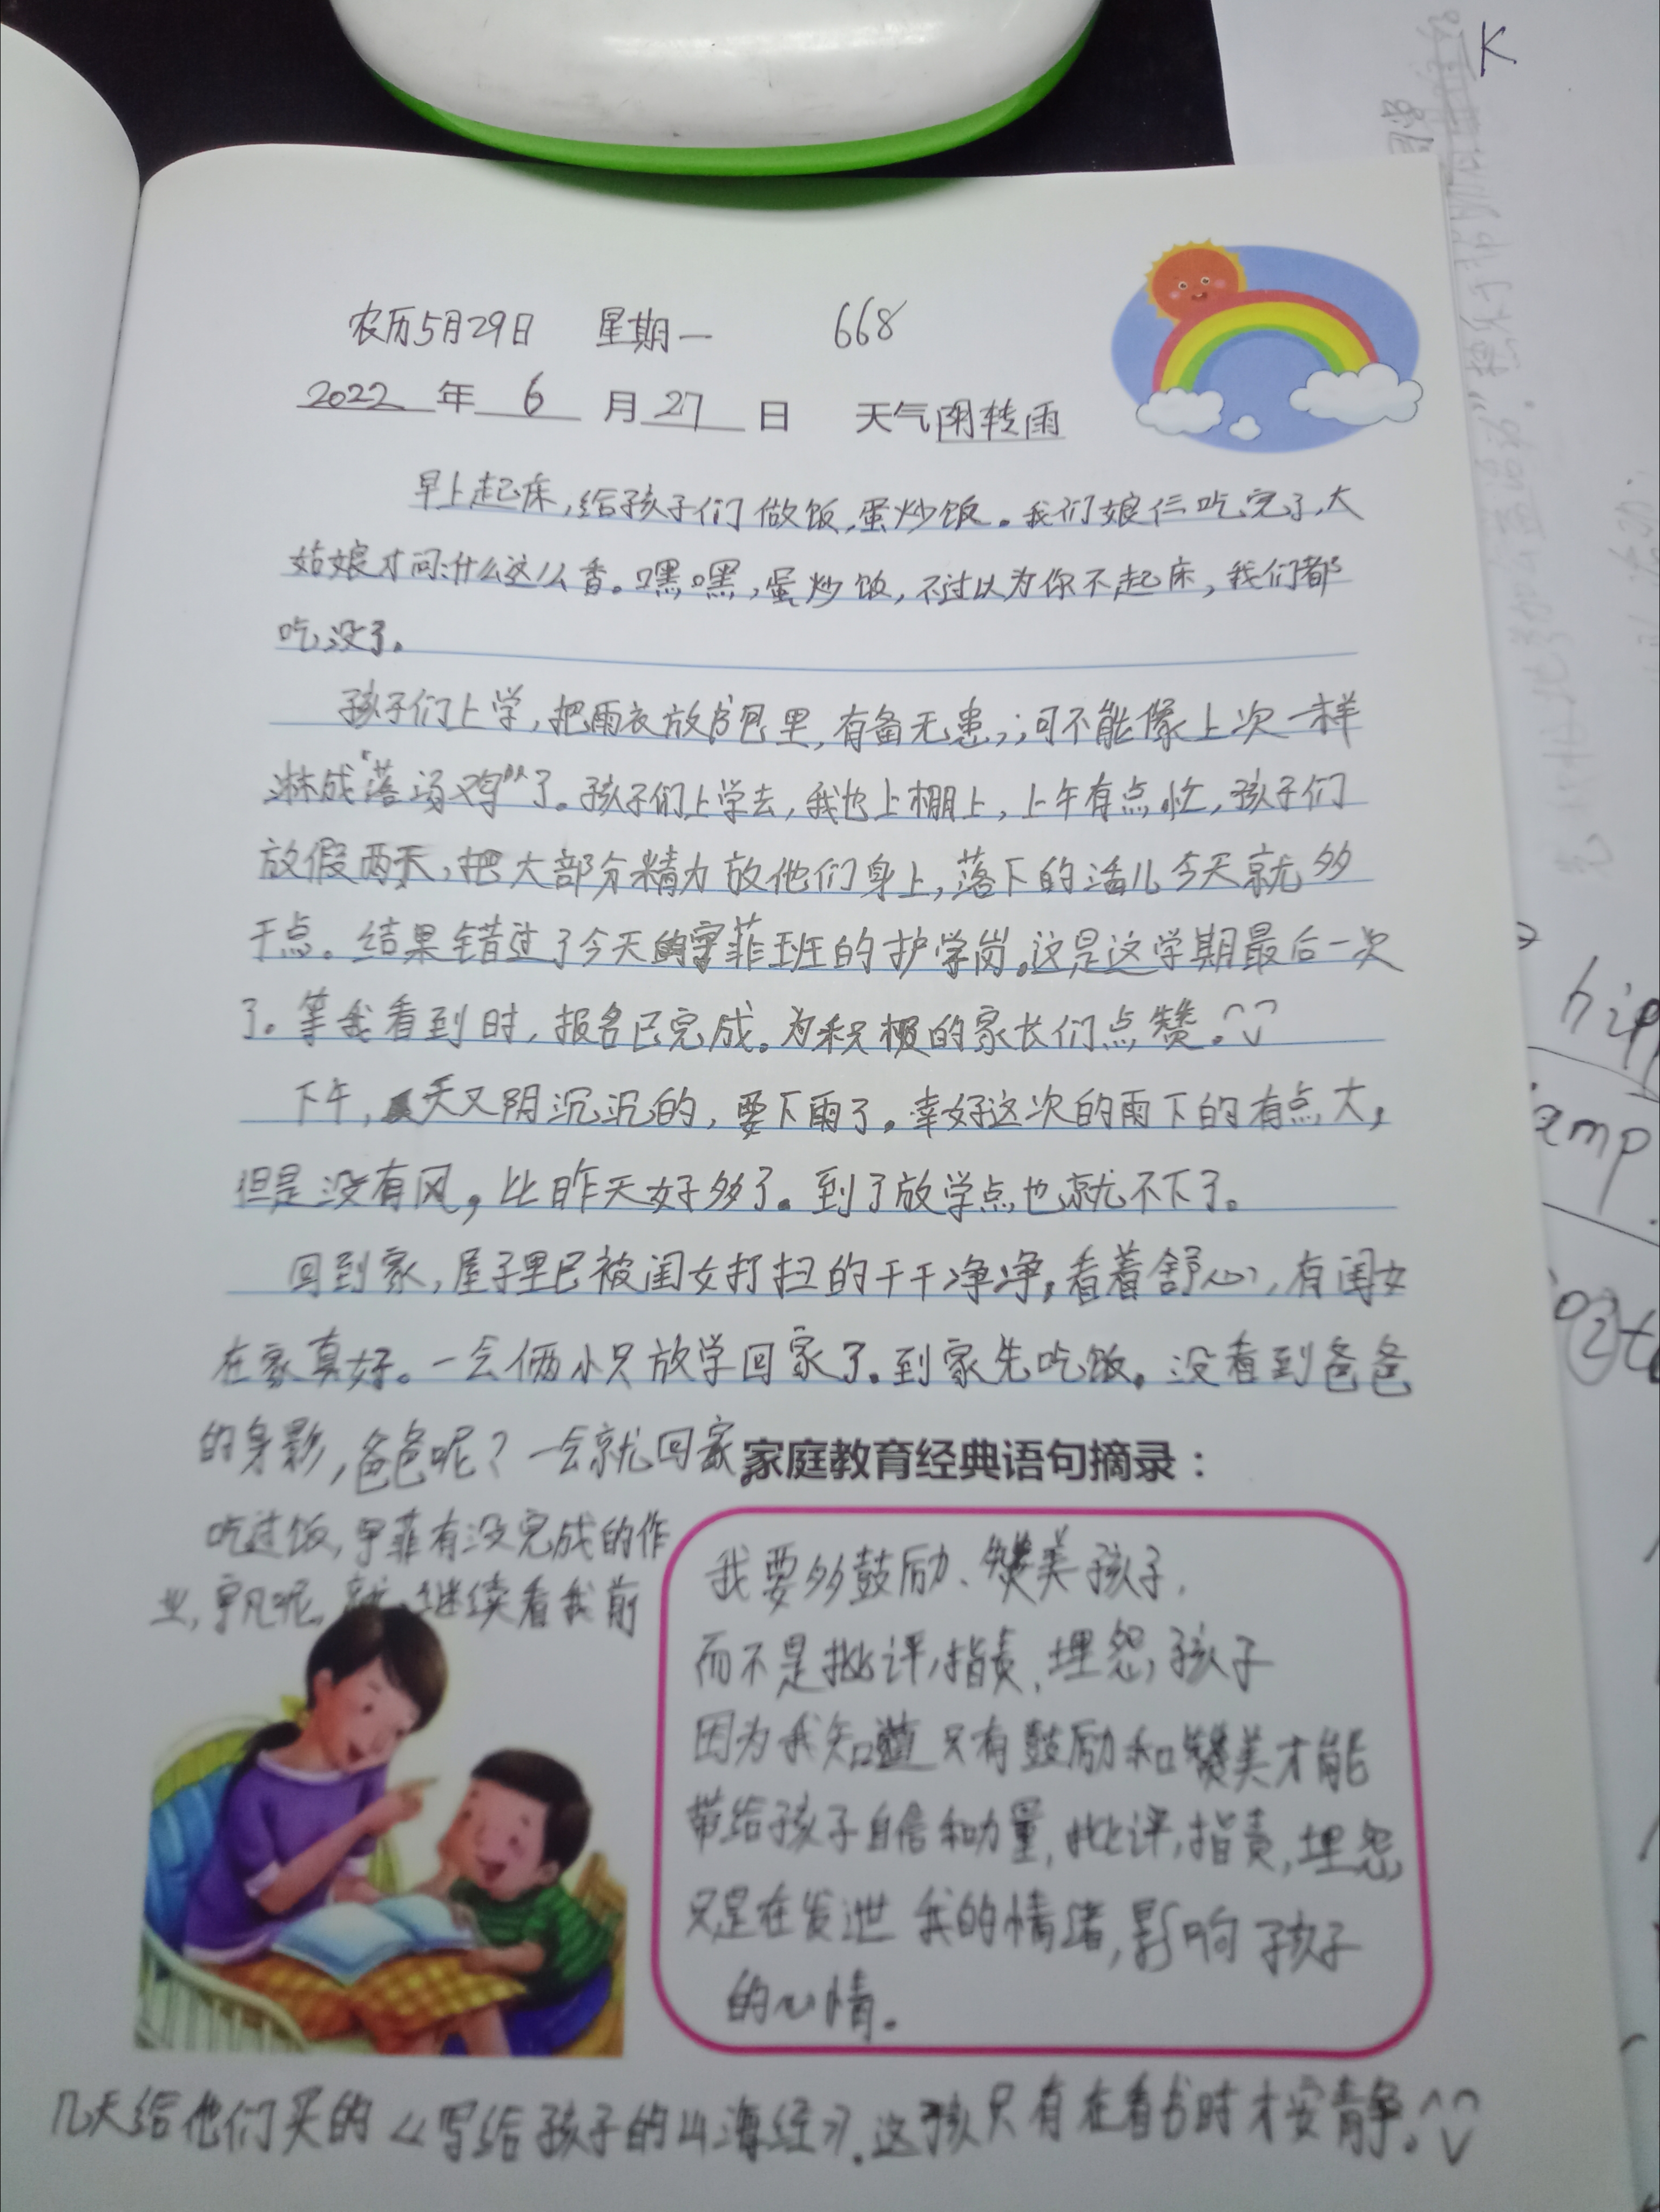 农历5月29日 星期一 668
2022年6月27日 天气阴转雨
早上起床,给孩子们做饭,蛋炒饭。我们娘仨吃完了,大
姑娘才问:什么这么香。嘿嘿,蛋炒饭,不过以为你不起床,我们都
吃没了。
孩子们上学,把雨衣放书包里,有备无患,;可不能像上次一样
淋成“落汤鸡”了。孩子们上学去,我也上棚上,上午有点忙,孩子们
放假两天,把大部分精力放他们身上,落下的活儿今天就多
干点。结果错过了今天的宇菲班的护学岗。这是这学期最后一次
了。等我看到时,报名已完成。为积极的家长们点赞。
下午,天又阴沉沉的,要下雨了。幸好这次的雨下的有点大,
但是没有风,比昨天好多了。到了放学点也就不下了。
回到家,屋子里已被闺女打扫的干干净净,看着舒心,有闺女
在家真好。一会俩小只放学回家了.到家先吃饭。没看到爸爸
的身影,爸爸呢?一会就回家。
家庭教育经典语句摘录:
吃过饭,宇菲有没完成的作
业,宇凡呢,就继续看我前
我要多鼓励、赞美孩子,
而不是批评,指责,埋怨,孩子
因为我知道只有鼓励和赞美才能
带给孩子自信和力量,批评,指责,埋怨
只是在发泄我的情绪,影响孩子
的心情。
几天给他们买的《写给孩子的山海经》.这孩只有在看书时才安静。
K
hipp
amp